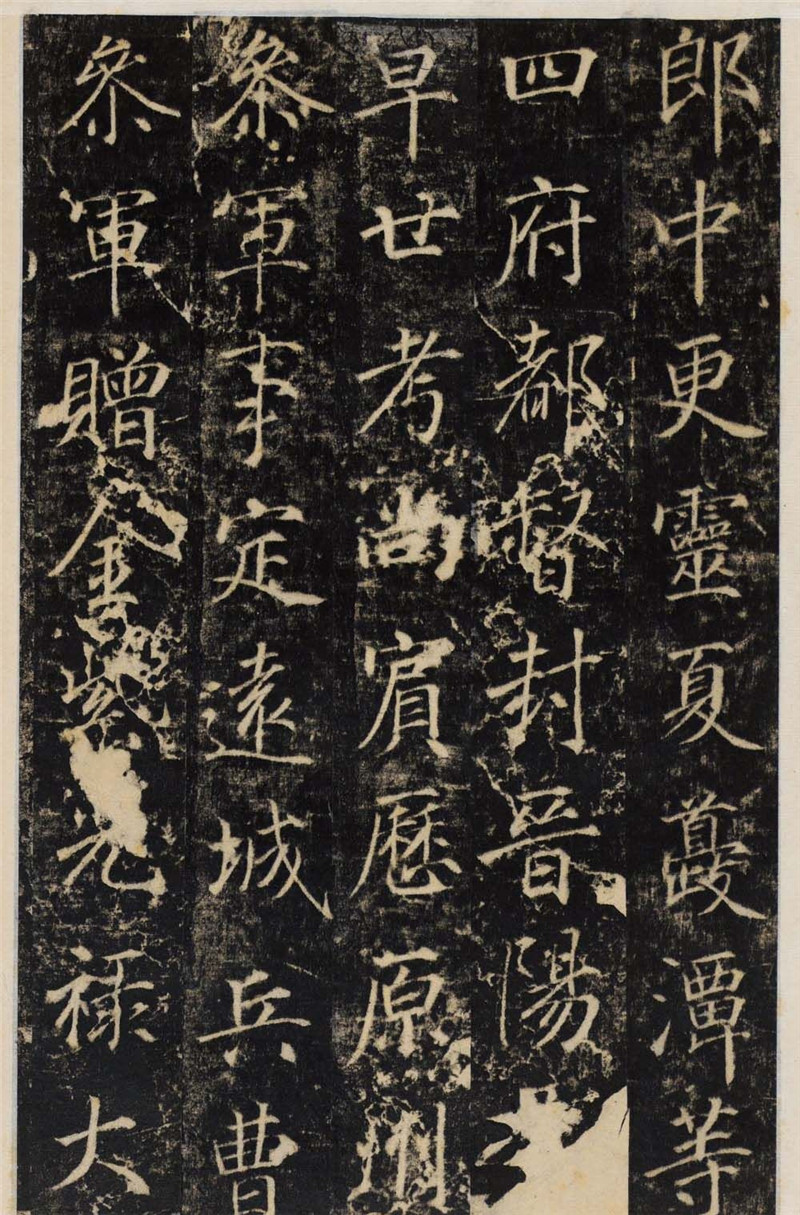 郎中更靈夏夔潭等
四府都督封晉陽
早世考尚賓歷原州
叅軍事定遠城兵曹
叅軍贈金紫光祿大